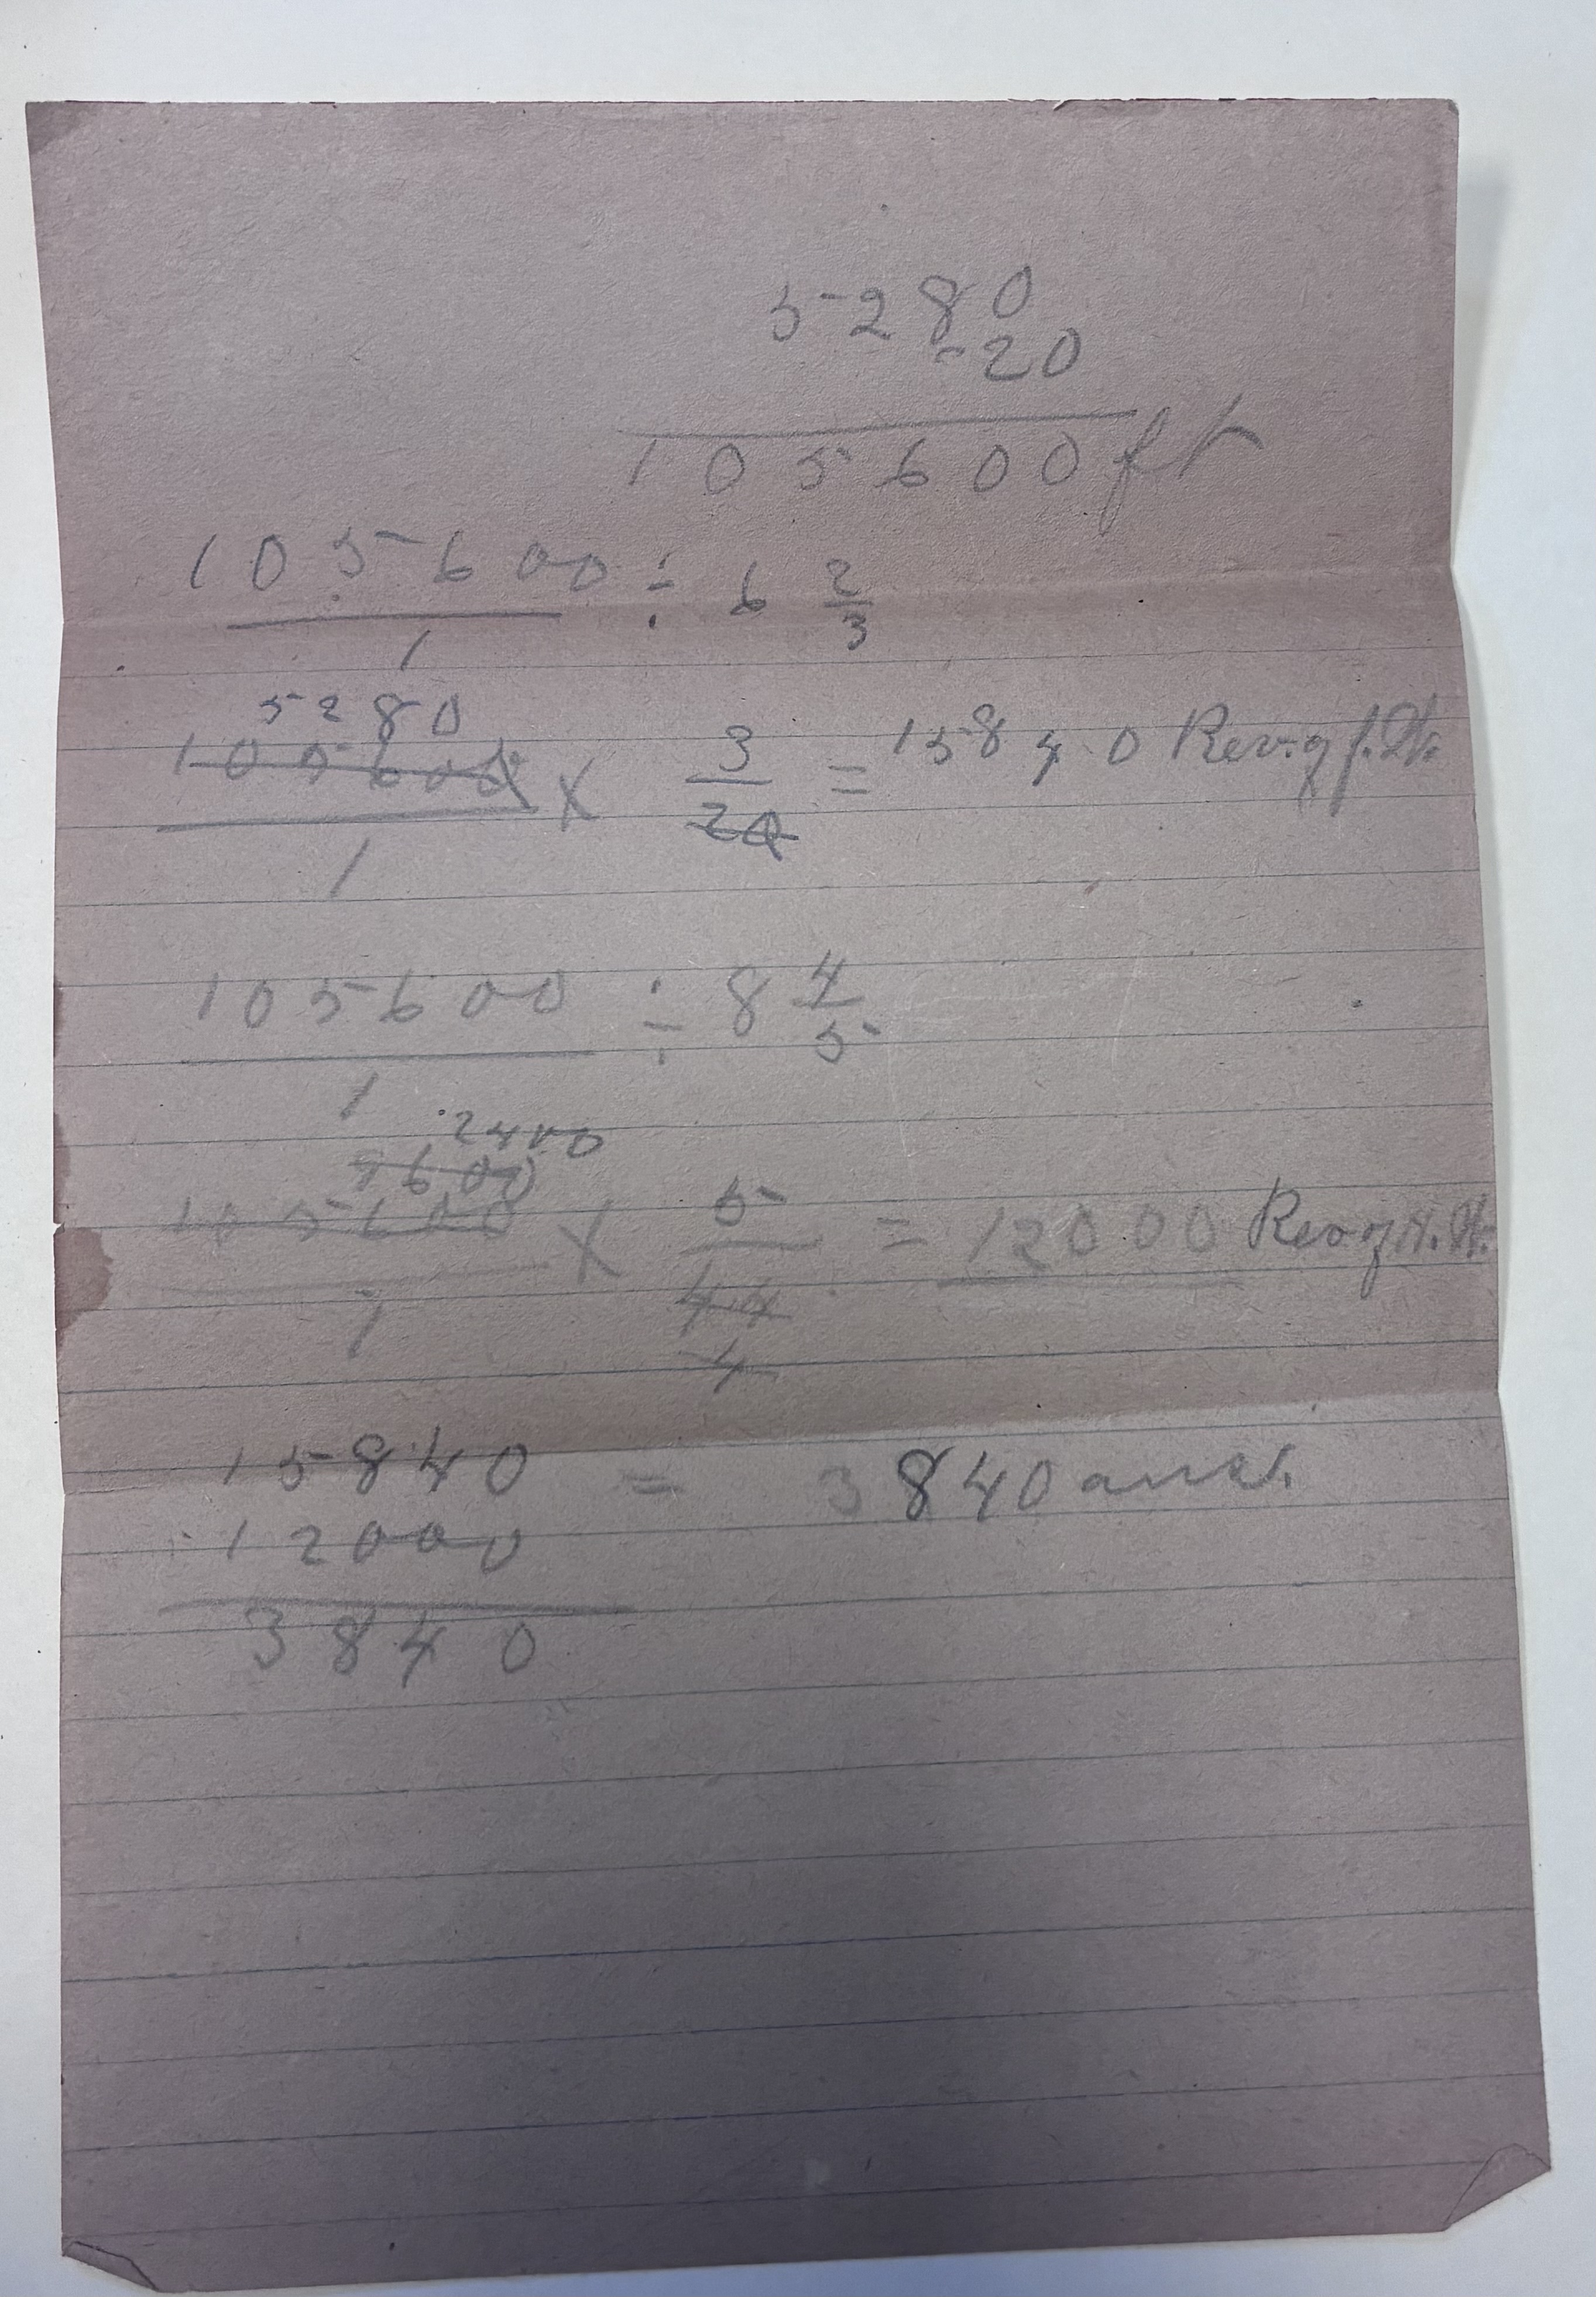 5280
20
105600 ft
105600 ÷ 6 2/3
1
5280
105600 × 3/20 = 15840 Rev. of f. W.
1
105600 ÷ 8 4/5
1
2400
9600
105600 × 5/44 = 12000 Rev of H. W.
1 4
15840 = 3840 ans.
12000
3840